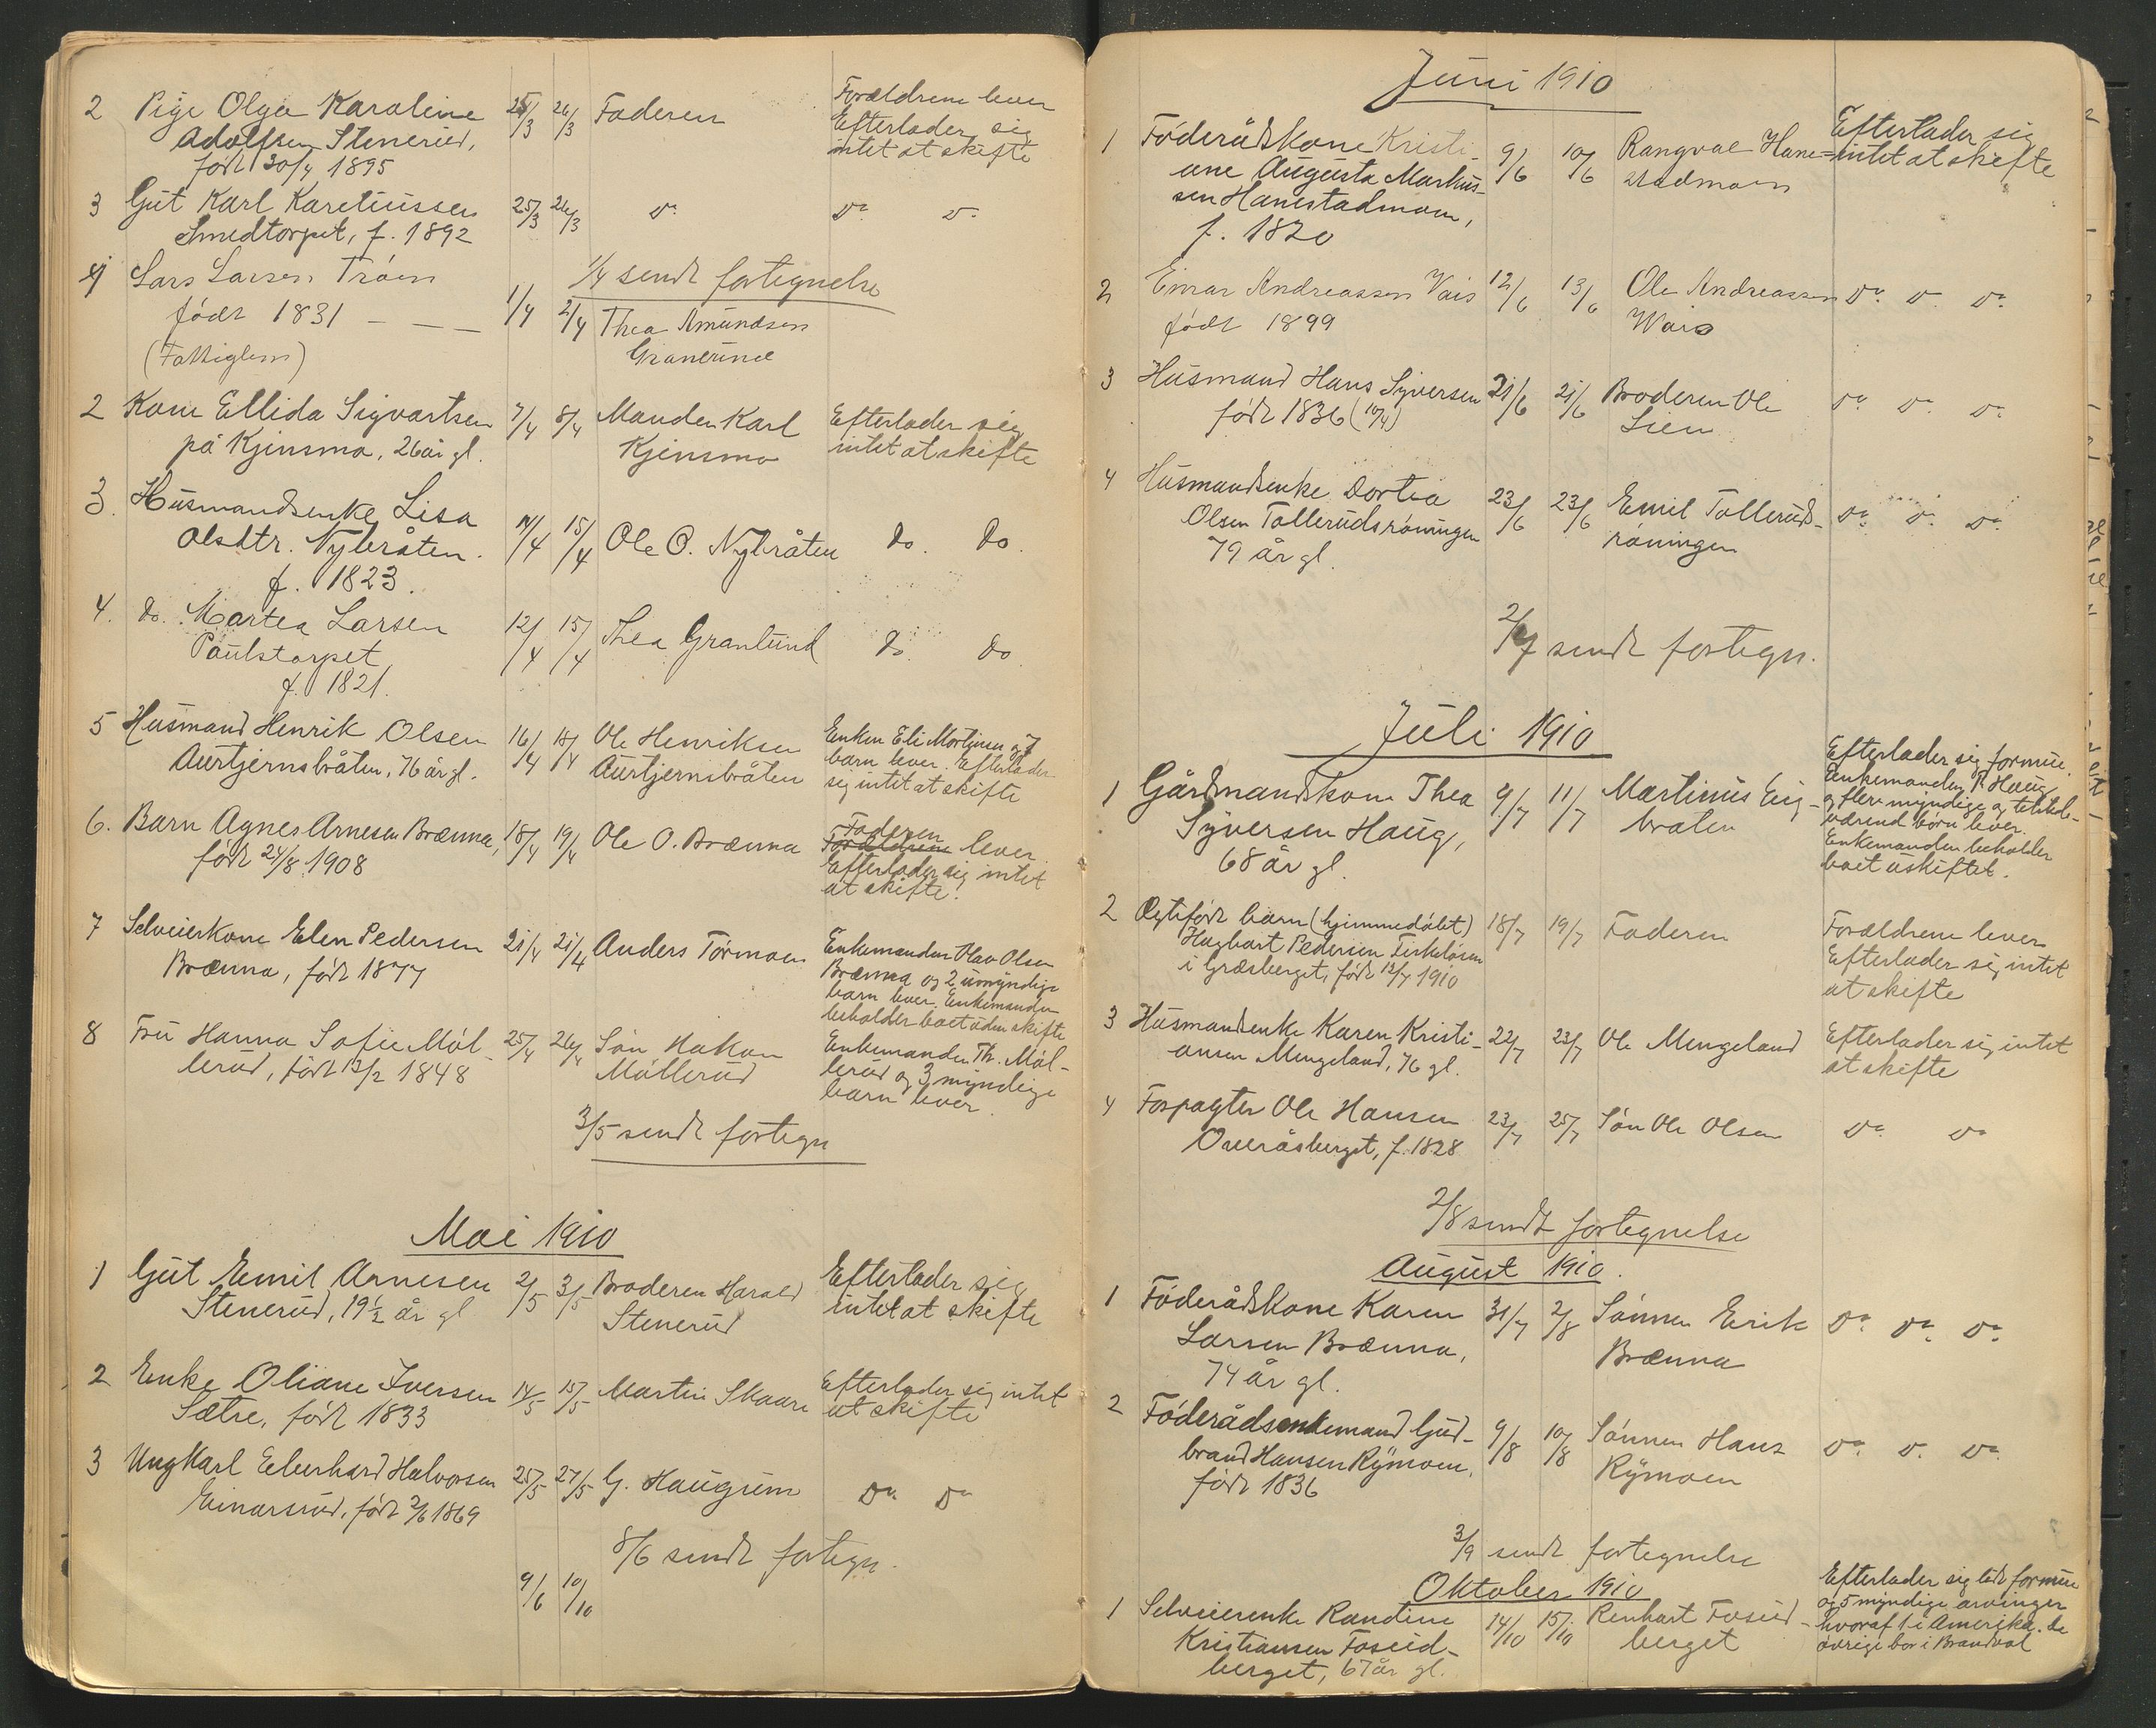 2 Pige Olga Karoline 25/3 26/3 Faderen Forældrene lever
Adolfsen Stenerud, Efterlader sig
født 30/4 1895 intet at skifte
3 Gut Karl Kareliussen 25/3 26/3 Do Do Do
Smedtorpet, f. 1892
1/4 sendt fortegnelse
1 Lars Larsen Tröen
født 1831 — — — 1/4 2/4 Thea Amundsen
(Fattiglem) Granerund
2 Kone Ellida Sigvartsen 7/4 8/4 Manden Karl Efterlader sig
på Kjensmo, 26 år gl. Kjensmo intet at skifte
3. Husmandsenke Lisa
Olsdtr. Nybråten. 14/4 15/4 Ole O. Nybråten do. do.
f. 1823.
4. do. Martea Larsen 12/4 15/4 Thea Granlund do do
Paulstorpet
f. 1821.
5 Husmand Henrik Olsen 16/4 18/4 Ole Henriksen Enken Eli Mortinsen og 7
Aurtjernsbråten, 76 år gl. Aurtjernsbråten barn lever. Efterlader
sig intet at skifte
6. Barn Agnes Arnesen Brænna, 18/4 19/4 Ole O. Brænna Faderen
født 24/8 1908 Forældrene lever
Efterlader sig intet
at skifte.
7 Selveierkone Elen Pedersen 21/4 21/4 Anders Törmoen Enkemanden Olav Olsen
Brænna, født 1877 Brænna og 2 umyndige
barn lever. Enkemanden
beholder boet uden skifte
8 Fru Hanna Sofie Möl- 25/4 26/4 Sön Hakon Enkemanden Th. Möl-
lerud, født 13/2 1848 Möllerud lerud og 3 myndige
barn lever.
3/5 sendt fortegn
Mai 1910
1 Gut Emil Arnesen 2/5 3/5 Broderen Harald Efterlader sig
Stenerud, 19½ år gl Stenerud intet at skifte
2 Enke Oliane Iversen 14/5 15/5 Martin Skaare Efterlader sig intet
Sætre, født 1833 at skifte
3 Ungkarl Eberhard Halvorsen 25/5 27/5 G. Haugum Do Do
Einarsrud, født 2/6 1869
8/6 sendt fortegn.
9/6 10/10
Juni 1910
1 Föderådskone Kristi- 9/6 10/6 Rangval Hane- Efterlader sig
ane Augusta Markus- stadmoen intet at skifte
sen Hanestadmoen,
f. 1820
2 Einar Andreassen Vais 12/6 13/6 Ole Andreassen Do Do Do
født 1899 Wais
3 Husmand Hans Syversen 21/6 21/6 Broderen Ole Do Do Do
født 1836 (10/4) Lien
4 Husmandsenke Dortea 23/6 23/6 Emil Tollerüds- Do Do Do
Olsen Tollerudsröningen röningen
79 år gl.
2/7 sendt fortegn.
Juli 1910
1 Gårdmandskone Thea 9/7 11/7 Martinus Eig- Efterlader sig formue.
Syversen Haug, braten Enkemanden P. Haug
68 år gl. og flere myndige og tilstede-
værend börn lever.
Enkemanden beholder
boet uskiftet.
2 Ægtefödt barn (hjemmedöbt) 18/7 19/7 Faderen Forældrene lever
Hagbart Pedersen Fiskelösen Efterlader sig intet
i Græsberget, født 12/7 1910 at skifte
3 Husmandsenke Karen Kristi- 22/7 23/7 Ole Mengeland Efterlader sig intet
ansen Mengeland, 76 gl. at skifte
4 Forpagter Ole Hansen 23/7 25/7 Sön Ole Olsen Do Do
Overåsberget, f. 1828
2/8 sendt fortegnelse
August 1910.
1 Föderådskone Karen 31/7 2/8 Sönnen Erik Do Do Do
Larsen Brænna, Brænna
74 år gl.
2 Föderådsenkemand Gud- 9/8 10/8 Sönnen Hans Do Do Do
brand Hansen Rymoen, Rymoen
født 1836
3/9 sendt fortegnelse
Oktober 1910
1 Selveierenke Randine 14/10 15/10 Renhart Foseid- Efterlader sig lidt formue
Kristiansen Foseid- berget og 5 myndige arvinger
berget, 67 år gl. hvoraf 1 i Amerika. de
övrige bor i Brandval